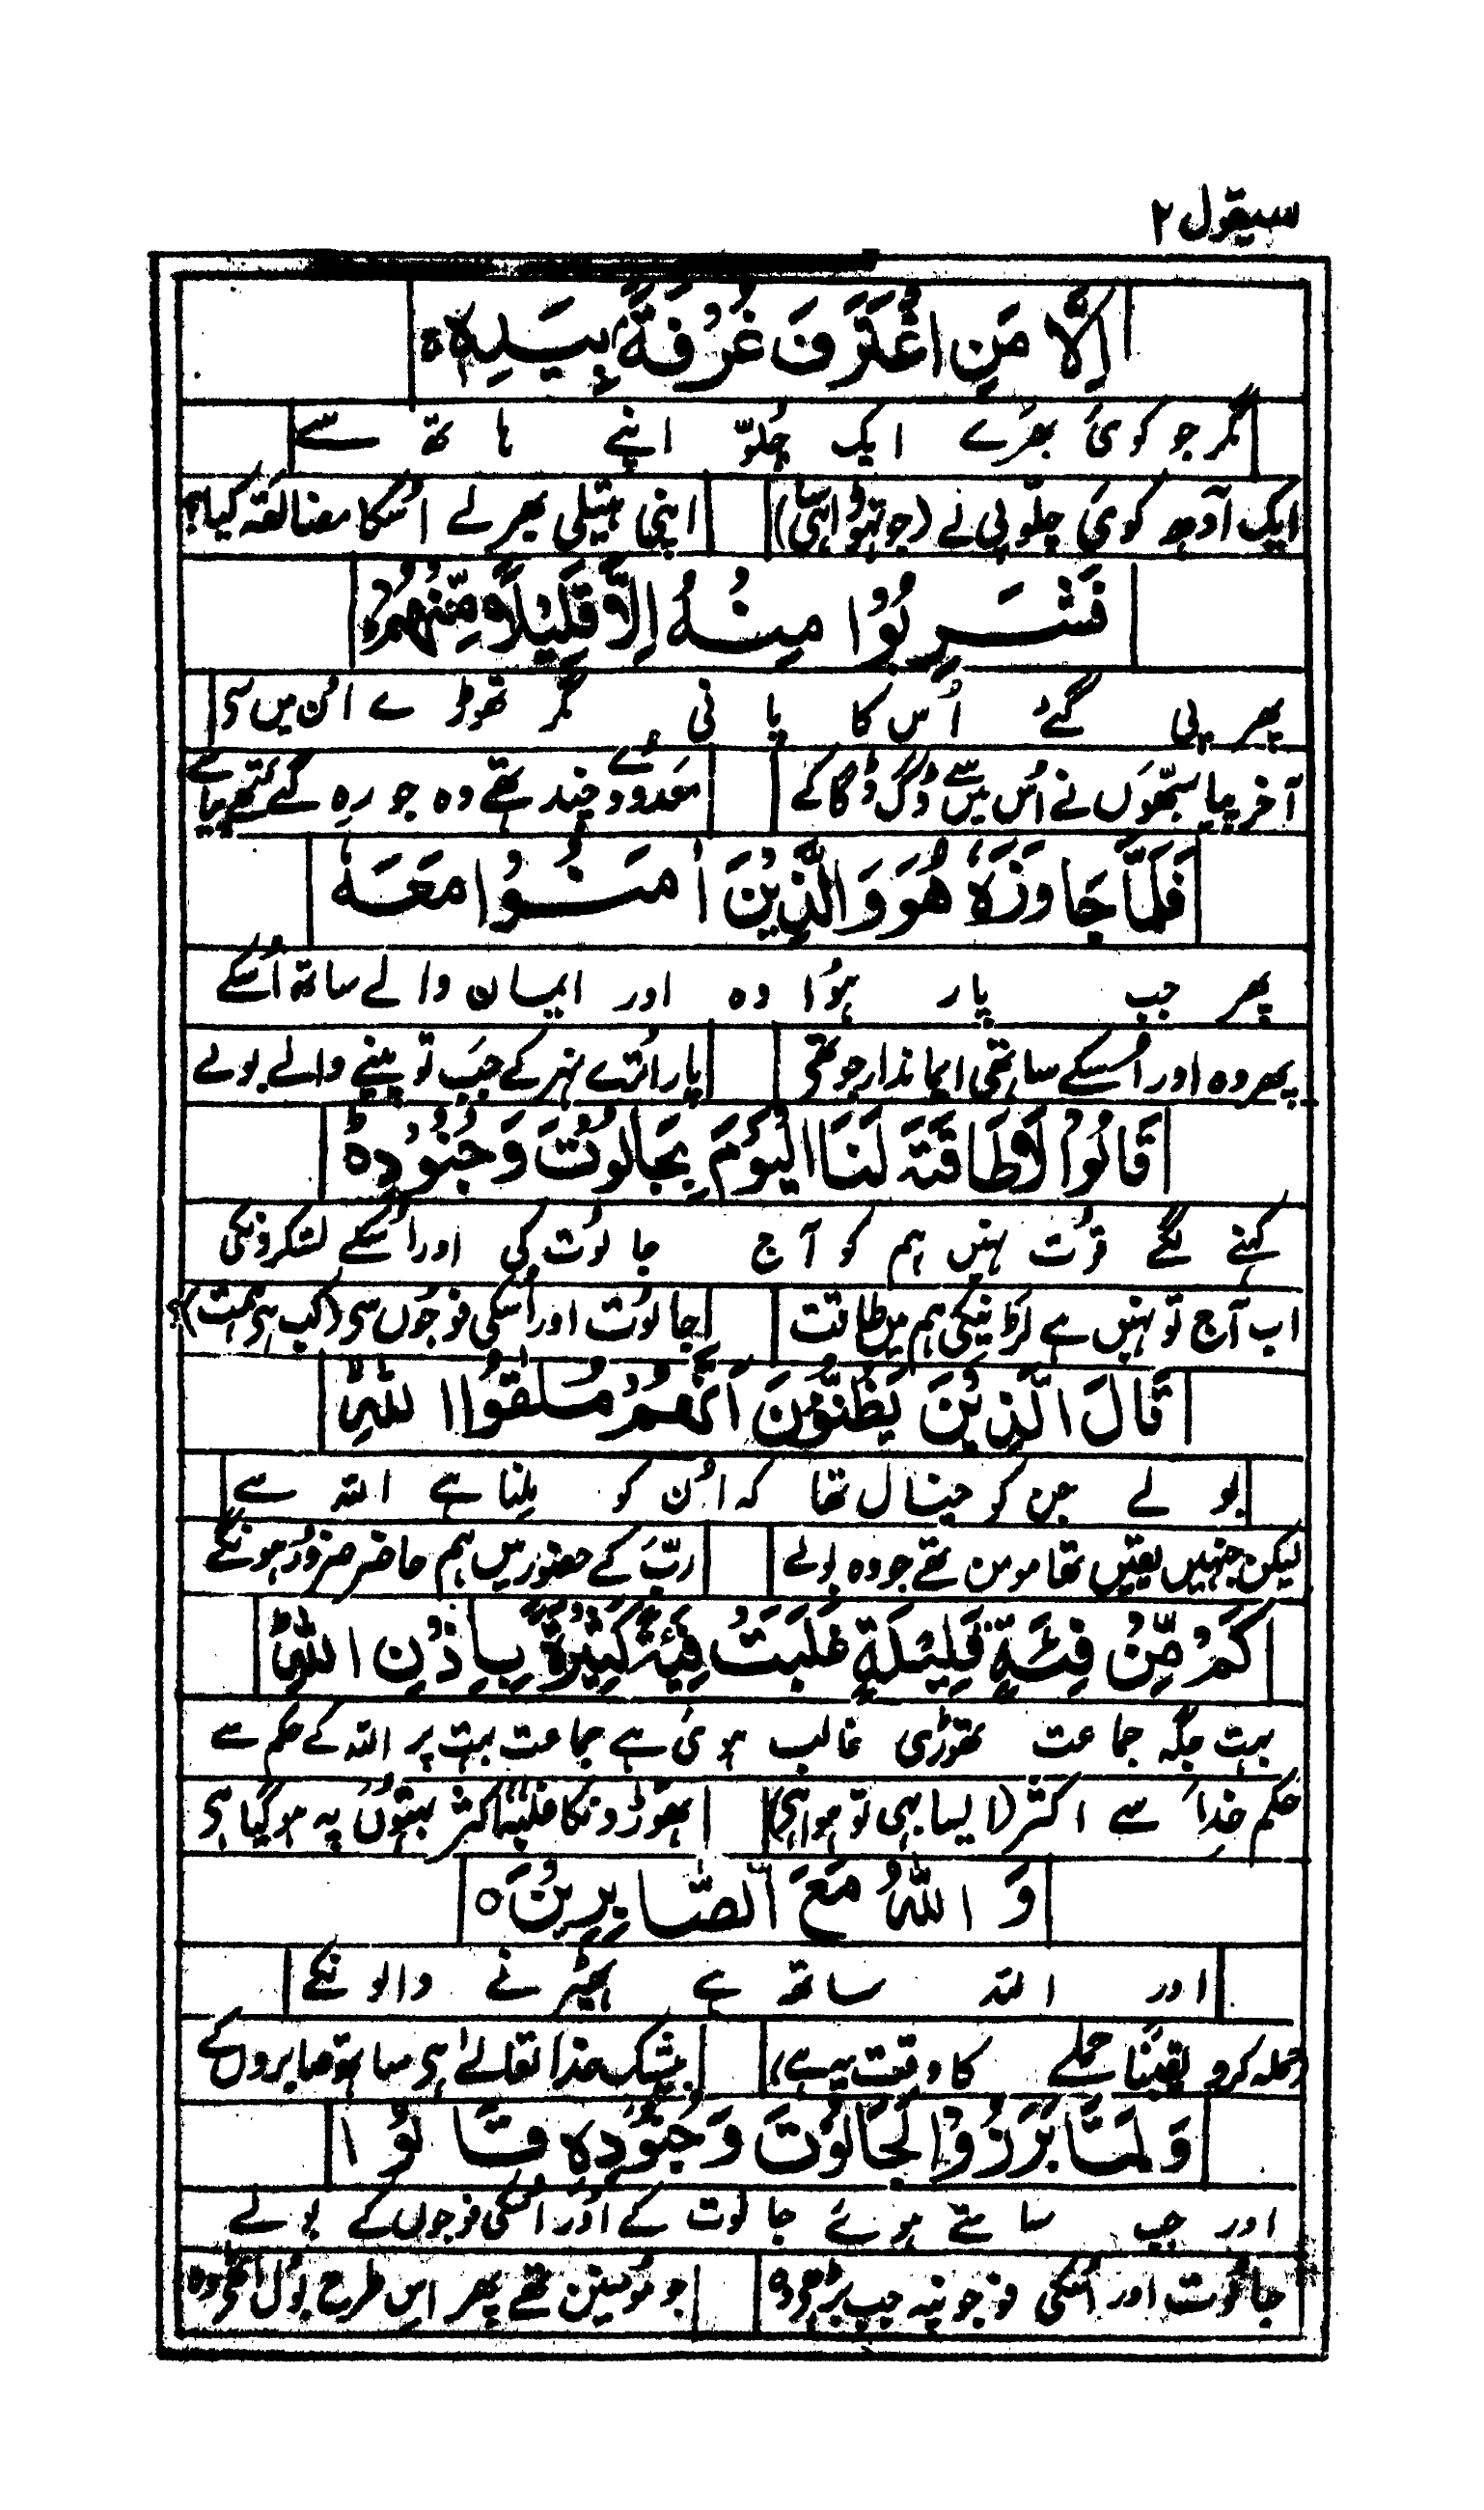 سیقول ۲
اِلَّا مَنِ اغْتَرَفَ غُرْفَةً بِیَدِهٖ
مگر جو کوئی بھرے ایک چلّو اپنے ہاتھ سے
ایک آدھ کوئی چلّو پی لے اپنی ہتیلی بھر لے اُسکا مضائقہ کیا
فَشَرِبُوْا مِنْهُ اِلَّا قَلِیْلًا مِّنْهُمْ
پھر پی گئے اُس کا پانی مگر تھوڑے اُن میں سی
آخر پیا سبھّوں نے اُس میں سے ڈگڈگا کے معدودے چند تھے وہ جو رہ گئے تھے پیاسے
فَلَمَّا جَاوَزَهٗ هُوَ وَالَّذِیْنَ اٰمَنُوْا مَعَهٗ
پھر جب پار ہُوا وہ اور ایمان والے ساتھ اُسکے
پھر وہ اور اُسکے ساتھی ایماندار جو تھی پار اُترے نہر کے جب تو پینے والے بولے
قَالُوْا لَا طَاقَةَ لَنَا الْیَوْمَ بِجَالُوْتَ وَجُنُوْدِهٖ
کہنے لگے قوُت نہیں ہم کو آج جالوُت کی اور اُسکے لشکرونکی
اب آج تو نہیں ہے لڑانیکی ہم میں طاقت جالوُت اور اُسکی فوجوُں سی
قَالَ الَّذِیْنَ یَظُنُّوْنَ اَنَّهُمْ مُّلٰقُوا اللّٰهِ
بولے جن کو خیال تھا کہ اُن کو مِلنا ہے اللہ سے
لیکن جنہیں یقیں تھا مومن تھے جو وہ بولے ربّ کے حضور میں ہم حاضر ضرور ہونگے
كَمْ مِّنْ فِئَةٍ قَلِیْلَةٍ غَلَبَتْ فِئَةً كَثِیْرَةً بِاِذْنِ اللّٰهِ
بہت جگہ جماعت تھوڑی غالب ہوئی ہے جماعت بہت پر اللہ کے حکم سے
حکم خدا سے اکثر (ایسا ہی تو ہوا ہی) تھوڑونکا غلبہ اکثر بہتوُں پہ ہو گیا ہی
وَ اللّٰهُ مَعَ الصّٰبِرِیْنَ ○
اور اللہ ساتھ ہے ٹھیرنے والونکے
حملہ کرو یقیناً حملے کا وقت یہ ہے، بیشک خدا تعالےٰ ہی ساتھ صابروں کے
وَلَمَّا بَرَزُوْا لِجَالُوْتَ وَجُنُوْدِهٖ قَالُوْا
اور جب سامنے ہوئے جالوُت کے اور اُسکی فوجوں کے بولے
جالوُت اور اُسکی فوجونپہ جب بڑھے وہ جو مومنین تھے پھر اس طرح بول اٹھے وہ